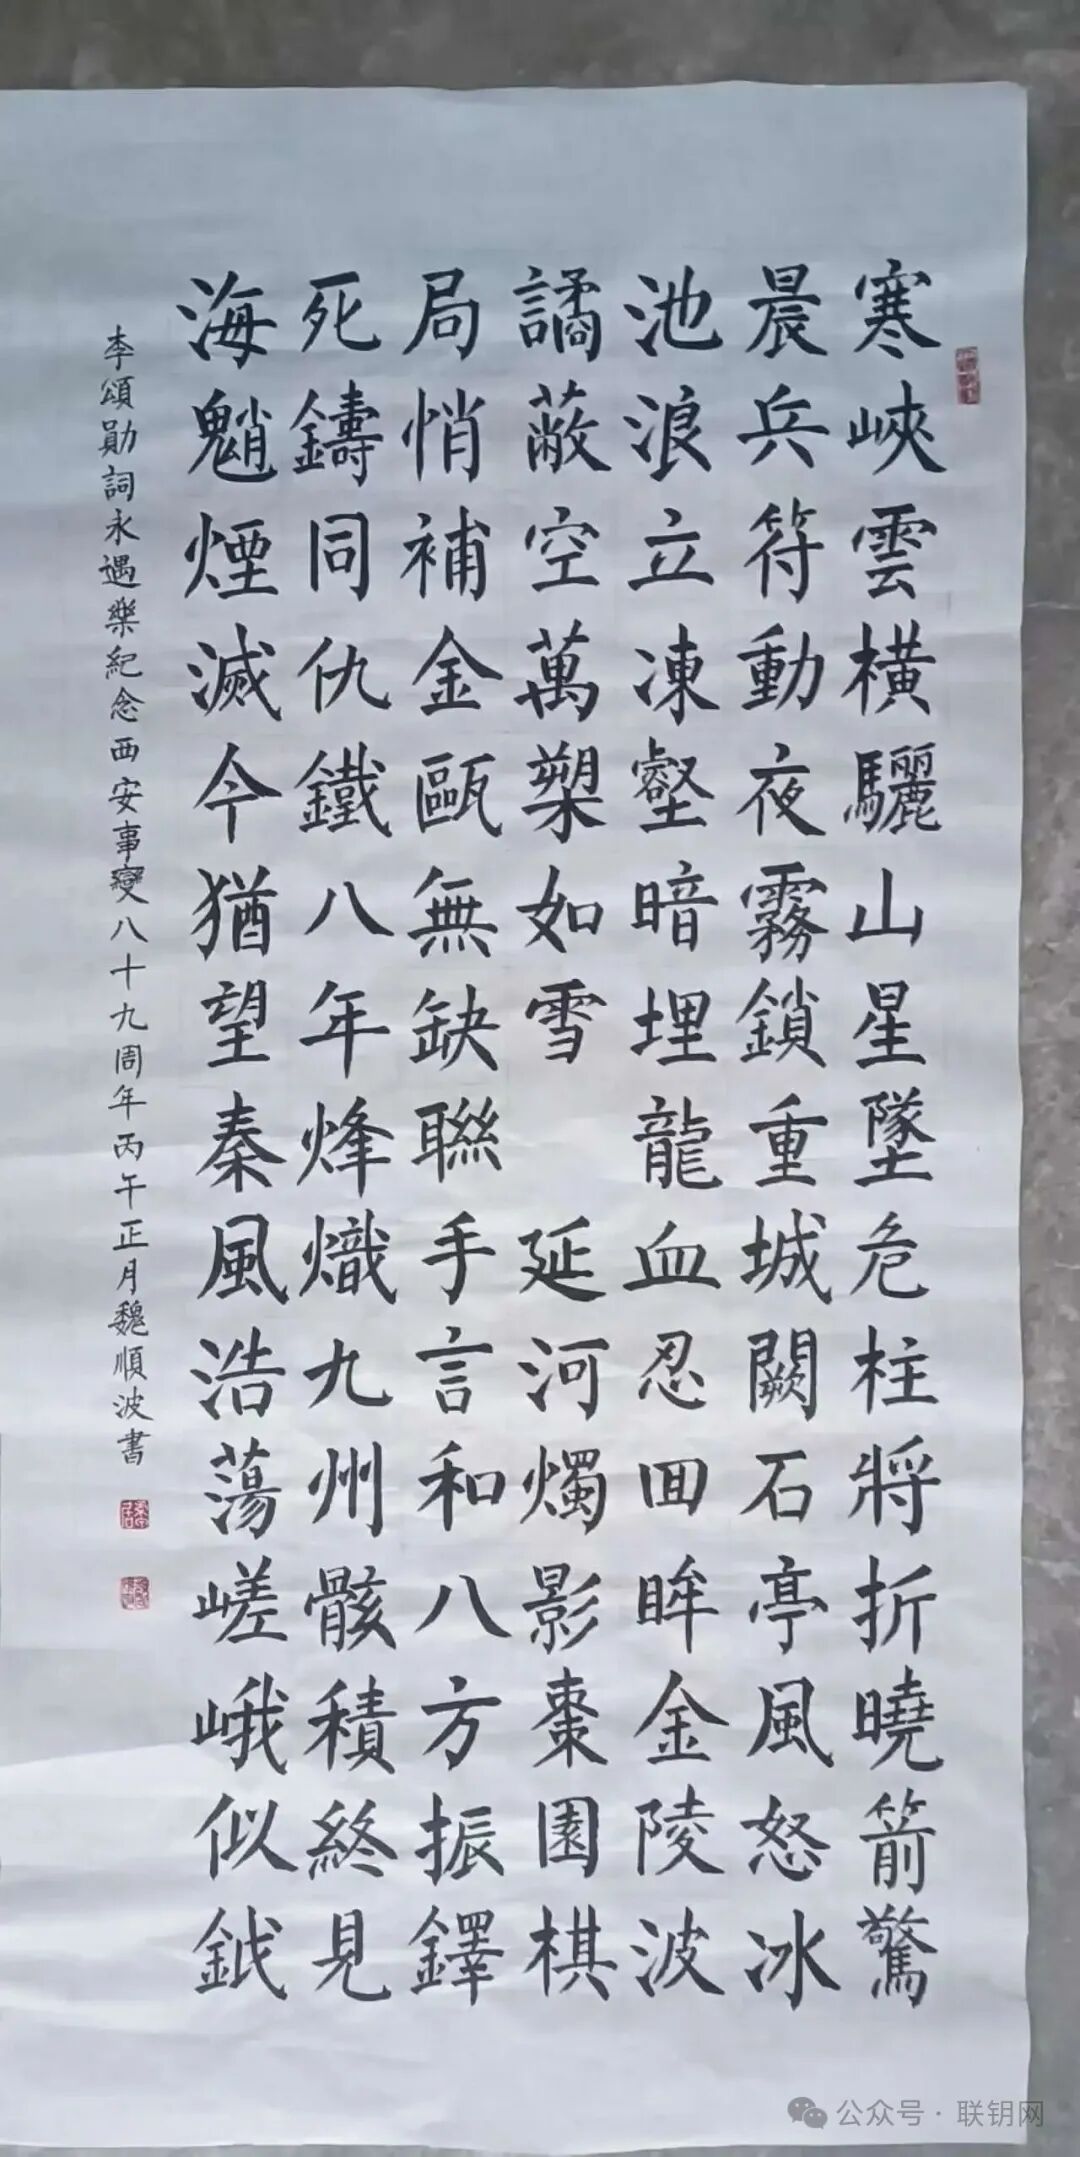 寒峽雲橫驪山星墜危柱將折曉箭驚
晨兵符動夜霧鎖重城闕石亭風怒冰
池浪立凍壑暗埋龍血忍回眸金陵波
譎蔽空萬槊如雪 延河燭影棗園棋
局悄補金甌無缺聯手言和八方振鐸
死鑄同仇鐵八年烽熾九州骸積終見
海魈煙滅今猶望秦風浩蕩嵯峨似鉞
李頌勛詞永遇樂紀念西安事變八十九周年丙午正月魏順波書
公众号·联钥网